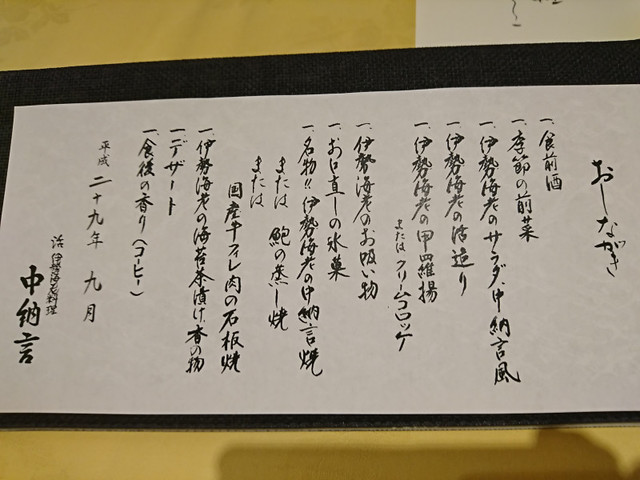 おしながき
一、食前酒
一、季節の前菜
一、伊勢海老のサラダ、中納言風
一、伊勢海老の活造り
一、伊勢海老の甲羅揚
またはクリームコロッケ
一、伊勢海老のお吸い物
一、お口直しの氷菓
一、名物!!伊勢海老の中納言焼
または 鮑の蒸し焼
または
国産牛フィレ肉の石板焼
一、伊勢海老の海苔茶漬け、香の物
一、デザート
一、食後の香り(コーヒー)
平成二十九年 九月
活伊勢海老料理
中納言